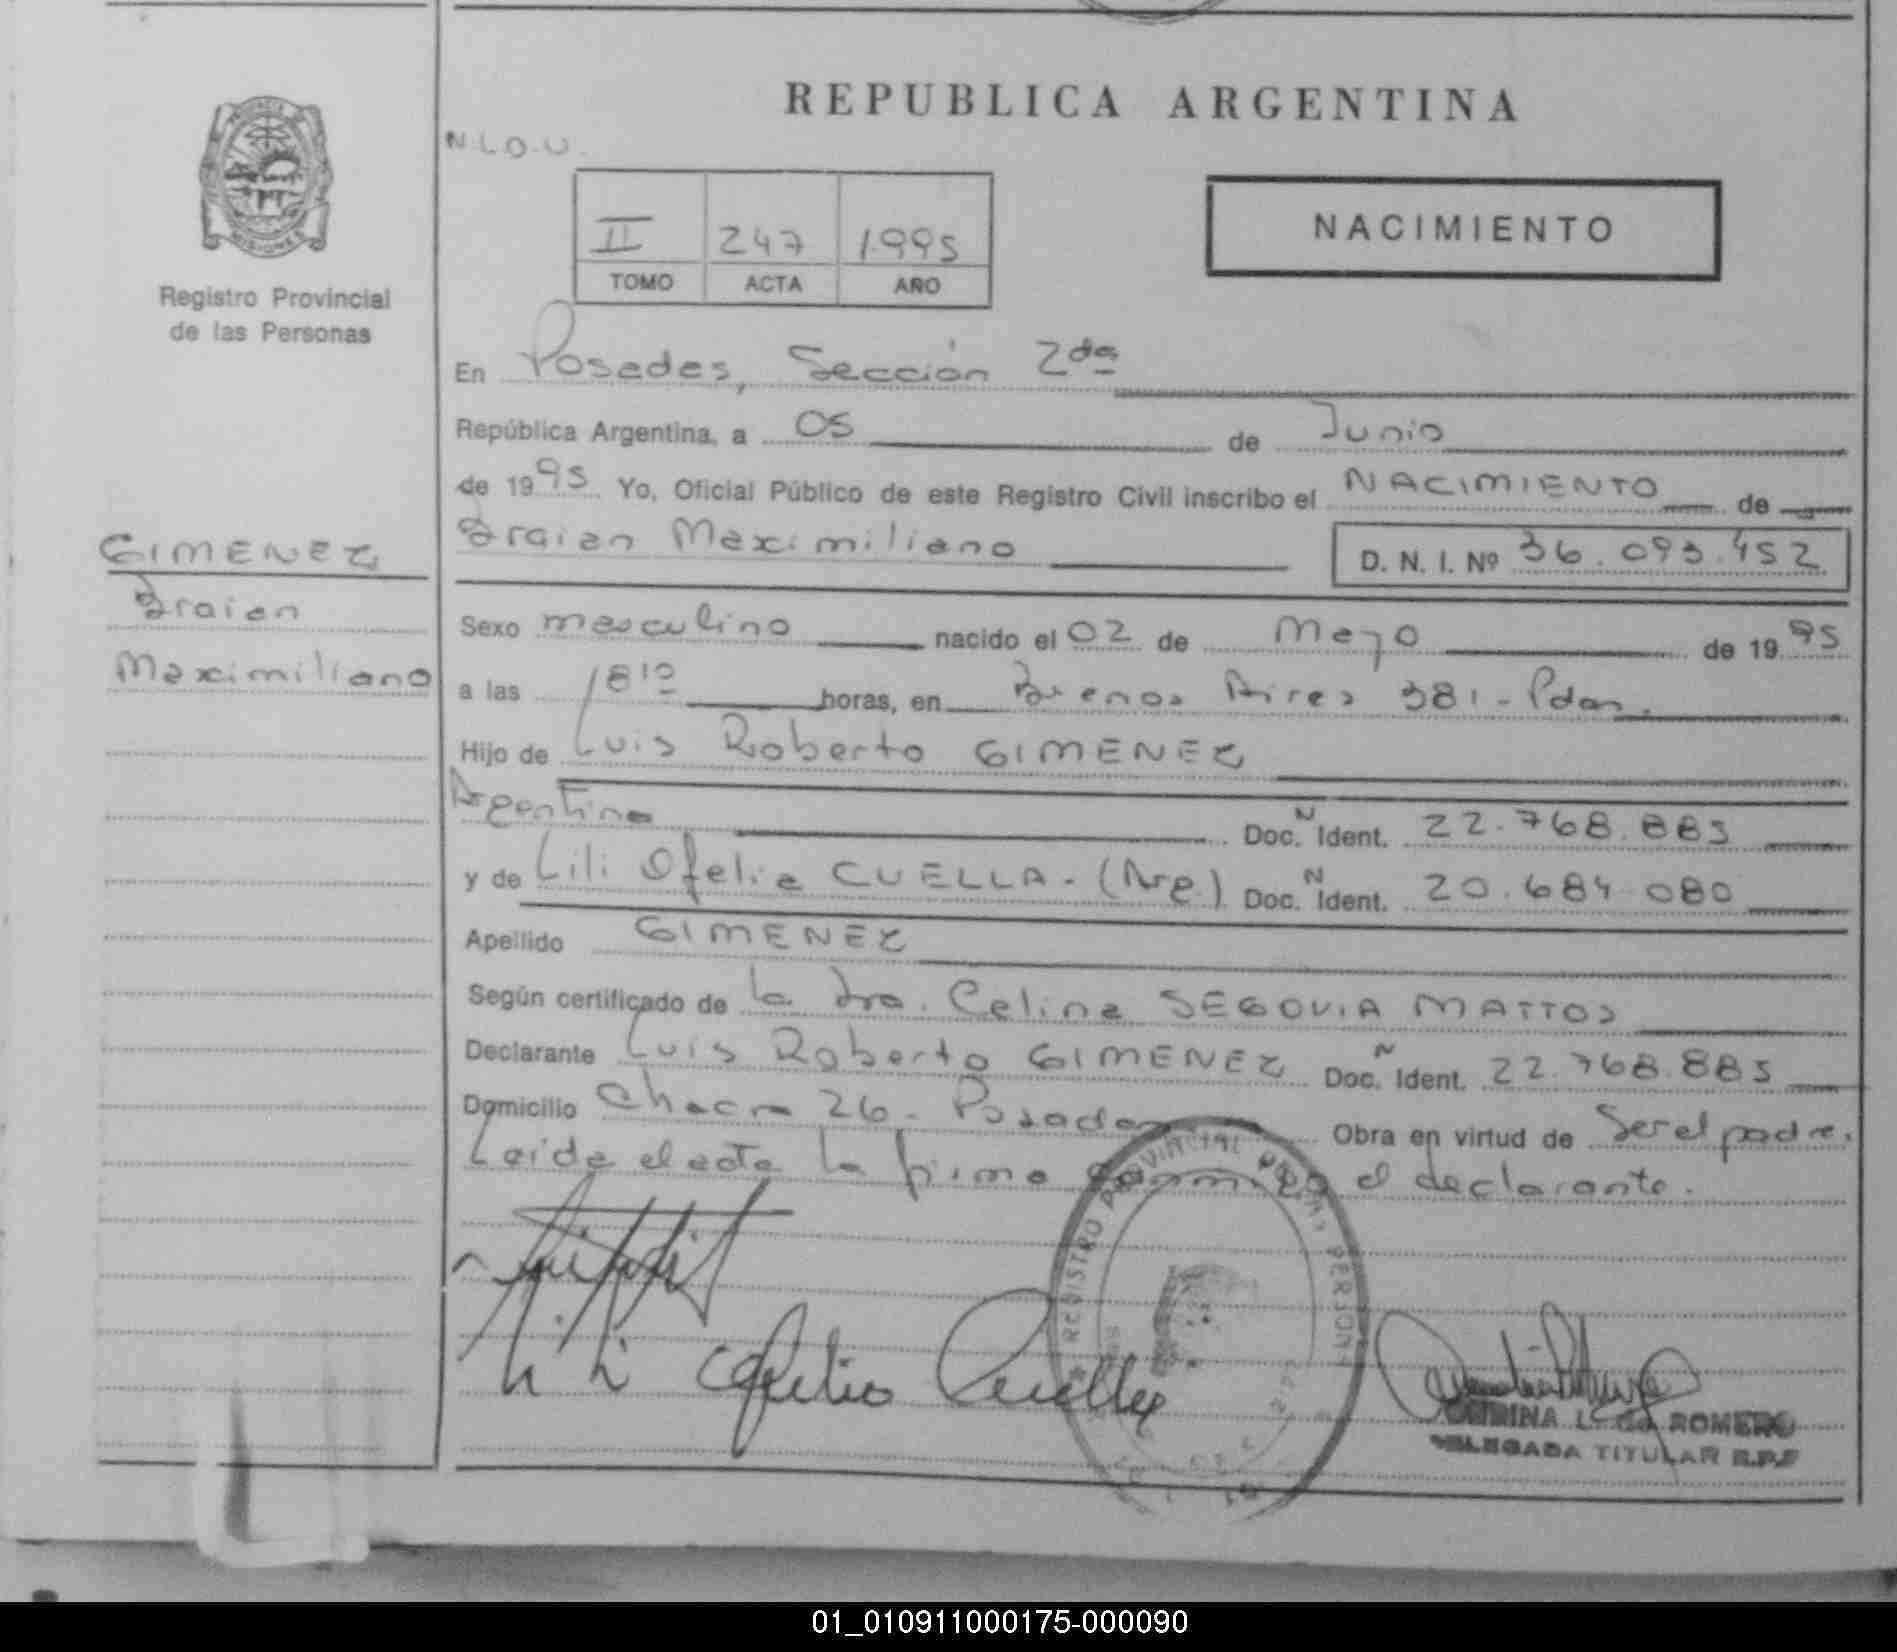 REPUBLICA ARGENTINA
N.L.O.U.
NACIMIENTO
II 247 1995
TOMO ACTA AÑO
PROVINCIA
MISIONES
Registro Provincial
de las Personas
GIMENEZ
Braian
Maximiliano
En Posadas, Sección 2da
República Argentina, a 05 de Junio
de 1995 Yo, Oficial Público de este Registro Civil inscribo el NACIMIENTO de
Braian Maximiliano D. N. I. Nº 36.093.452
Sexo masculino nacido el 02 de Mayo de 1995
a las 18 10 horas, en Buenos Aires 381 - Pdas.
Hijo de Luis Roberto GIMENEZ
Argentino Doc. N Ident. 22.768.885
y de Lili Ofelia CUELLA - (Arg) Doc. N Ident. 20.684.080
Apellido GIMENEZ
Según certificado de la Dra. Celina SEGOVIA MATTOS
Declarante Luis Roberto GIMENEZ Doc. N Ident. 22.768.885
Domicilio Chacra 26 - Posadas Obra en virtud de Ser el padre.
Leída el acta la firma conmigo el declarante.
REGISTRO PROVINCIAL PERSONAS
Ofelia Cuella
L. de ROMERO
DELEGADA TITULAR R.P.P
01_010911000175-000090